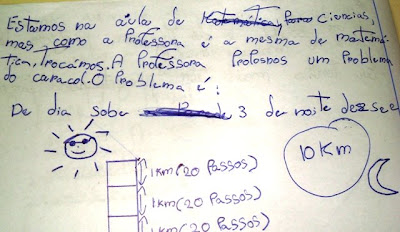 Estamos na aula de Matemática, para Ciencias,
mas como a Professora é a mesma de matemá-
tica, trocámos. A Professora Propôsnos um Problema
do caracol. O Problema é:
De dia sobe 3 de noite desse
10 Km
1km (20 Passos)
1km (20 Passos)
1km (20 Passos)